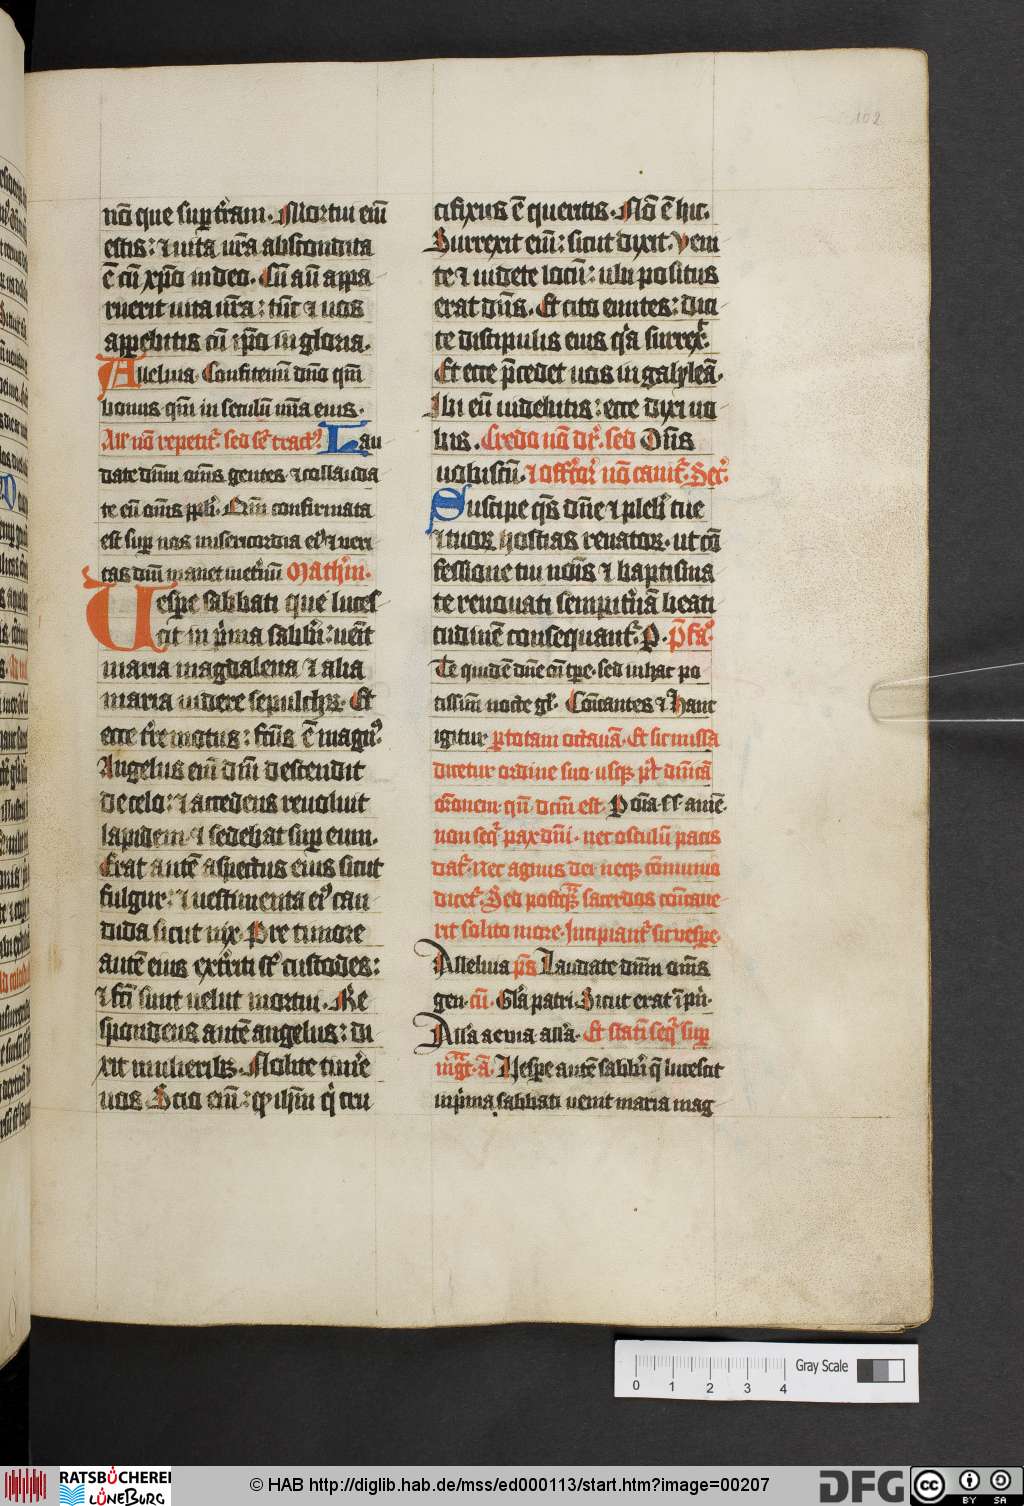 102
nō que suꝑ t̄ram. Mortui em̄
estis: ⁊ uita ur̄a abscondita
ē cū xp̄o in deo. Cū aūt appa
ruerit uita ur̄a: tūc ⁊ uos
appebitis cū ip̄o in gloria.
Alleluia. Confitemī dn̄o qm̄
bonus. qm̄ in seculū mīa eius.
All' nō repetit᷑. sed seq᷑ tract᷑
Lau
date dnm̄ om̄s gentes. ⁊ collauda
te eū om̄s ppl'i. Qm̄ confirmata
est suꝑ nos misericordia ei᷒ ⁊ ueri
tas dnī manet inet'nū Math'm.
Uespe sabbati que luces
cit in p'ma sabb'i: uēit
maria magdalena ⁊ alia
maria uidere sepulchꝝ. Et
ecce t're motus: fc̄us ē magn᷒
Angelus em̄ dnī descendit
de celo: ⁊ accedens reuoluit
lapidem. ⁊ sedebat suꝑ eum.
Erat autē aspectus eius sicut
fulgur: ⁊ uestimenta ei᷒ can
dida sicut nix. Pre timore
autē eius ext'riti sȶ custodes:
⁊ fc̄i sunt uelut mortui. Re
spondens autē angelus: di
xit mulieribꝫ. Nolite tim'e
uos. Scio em̄: ꝙ ih̄m q' cru
cifixus ē queritis. Nō ē hic.
Surrexit em̄: sicut dixit. Veni
te ⁊ uidete locū: ubi positus
erat dn̄s. Et cito euntes: dici
te discipulis eius q'a surrex᷑.
Et ecce p̄cedet uos in galyleā.
Ibi eū uidebitis: ecce dixi uo
bis. Credo nō dr᷑. sed Dn̄s
uobiscū. ⁊ off'tor' nō canit᷑. Sec'.
Suscipe q̄s dn̄e ⁊ pleb' tue
⁊ tuoꝝ hostias renatoꝝ. ut cō
fessione tui noīs ⁊ baptisma
te renouati sempit'nā beati
tudinē consequant᷑. P. p̄fac᷒.
Te quidē dn̄e oī tꝑe. sed in hac po
tissimū nocte gl'. Cōīcantes ⁊ Hanc
igitur ꝑ totam octauā. Et sic missa
dicetur ordine suo. usqꝫ p᷒t dn̄icā
orōnem. qn̄ dc̄m est. P om̄a s. s. amē.
non seq᷑ pax dnī. nec osculū pacis
dat᷑. Nec agnus dei. neqꝫ cōmunio
dicet᷑. Sed postꝗ̄ sacerdos cōīcaue
rit solito more. Incipiant᷑ sic uespe.
Alleluia p̄s Laudate dnm̄ om̄s
gen. cū. Gl'a patri. Sicut erat ī pn'.
All'a aeuia. all'a. Et statī seq᷑ suꝑ
mgt. ā. Vespe autē sabb'i q̄ lucescit
in p'ma sabbati uenit maria mag
0 1 2 3 4
Gray Scale
RATSBÜCHEREI
LÜNEBURG
© HAB http://diglib.hab.de/mss/ed000113/start.htm?image=00207
DFG
cc
BY SA